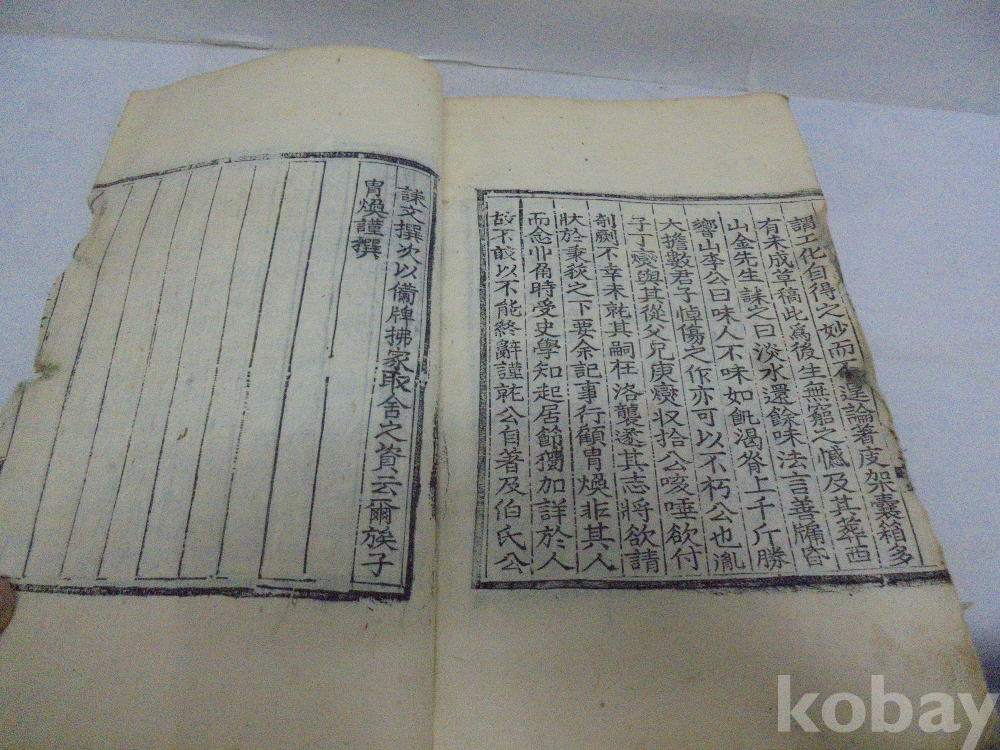 謂工化自得之妙而不遑論著庋架囊箱多
有未成草稿此爲後生無窮之憾及其葬西
山金先生誄之曰淡水還餘味法言善牖昏
響山李公曰味人不味如飢渴脊上千斤勝
大擔數君子悼傷之作亦可以不朽公也胤
子丁燮與其從父兄庚燮收拾公咳唾欲付
剞劂不幸未就其嗣在洛襲遂其志將欲請
狀於秉荻之下要余記事行顧胄煥非其人
而念丱角時受史學知起居節獨加詳於人
故不敢以不能終辭謹就公自著及伯氏公
誄文撰次以備牌拂家取舍之資云爾族子
胄煥謹撰
kobay